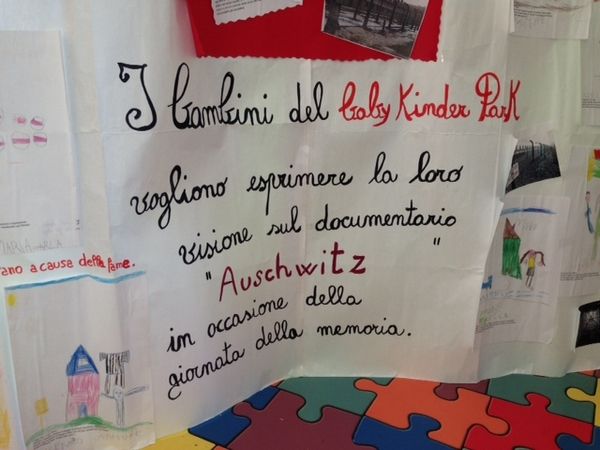 I bambini del baby Kinder Park
vogliono esprimere la loro
visione sul documentario
"Auschwitz"
in occasione della
giornata della memoria.
ano a causa della fame.